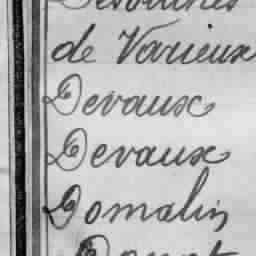 de Varieux
Devaux
Devaux
Domalin